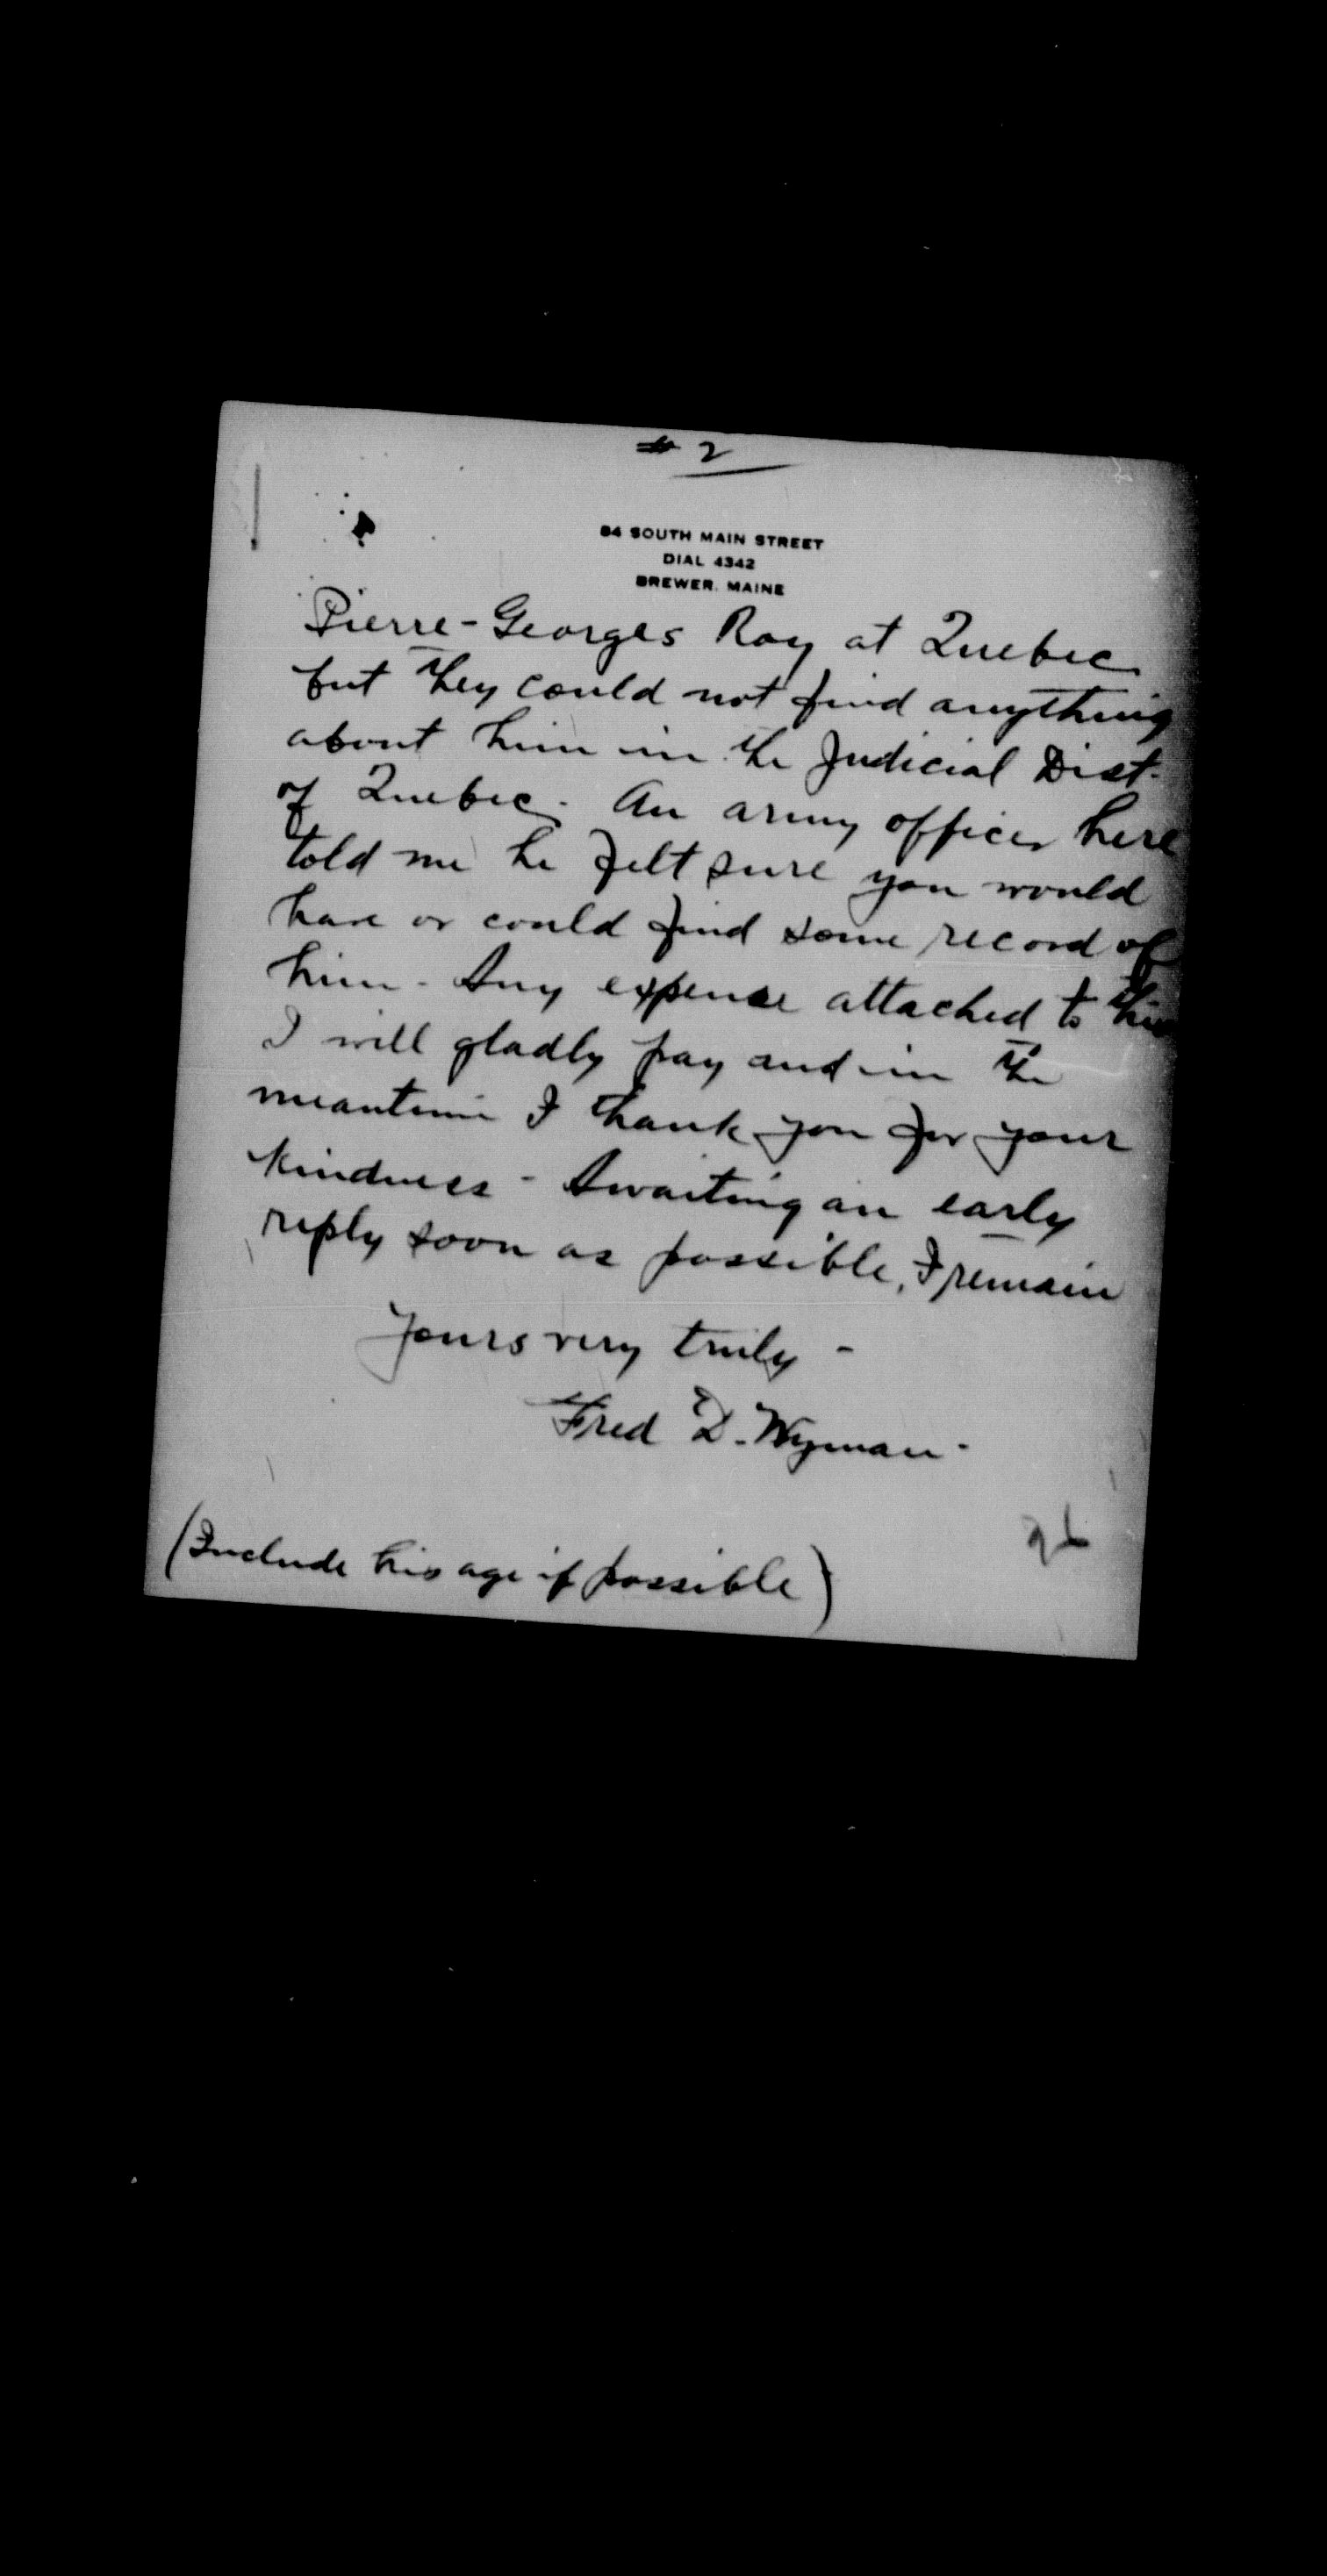 # 2
84 SOUTH MAIN STREET
DIAL 4342
BREWER, MAINE
Pierre-Georges Roy at Quebec
but they could not find anything
about him in the Judicial Dist.
of Quebec. An army officer here
told me he felt sure you would
have or could find some record of
him. Any expense attached to this
I will gladly pay and in the
meantime I thank you for your
kindness - Awaiting an early
reply soon as possible, I remain
Yours very truly -
Fred D. Wyman -
(Include his age if possible)